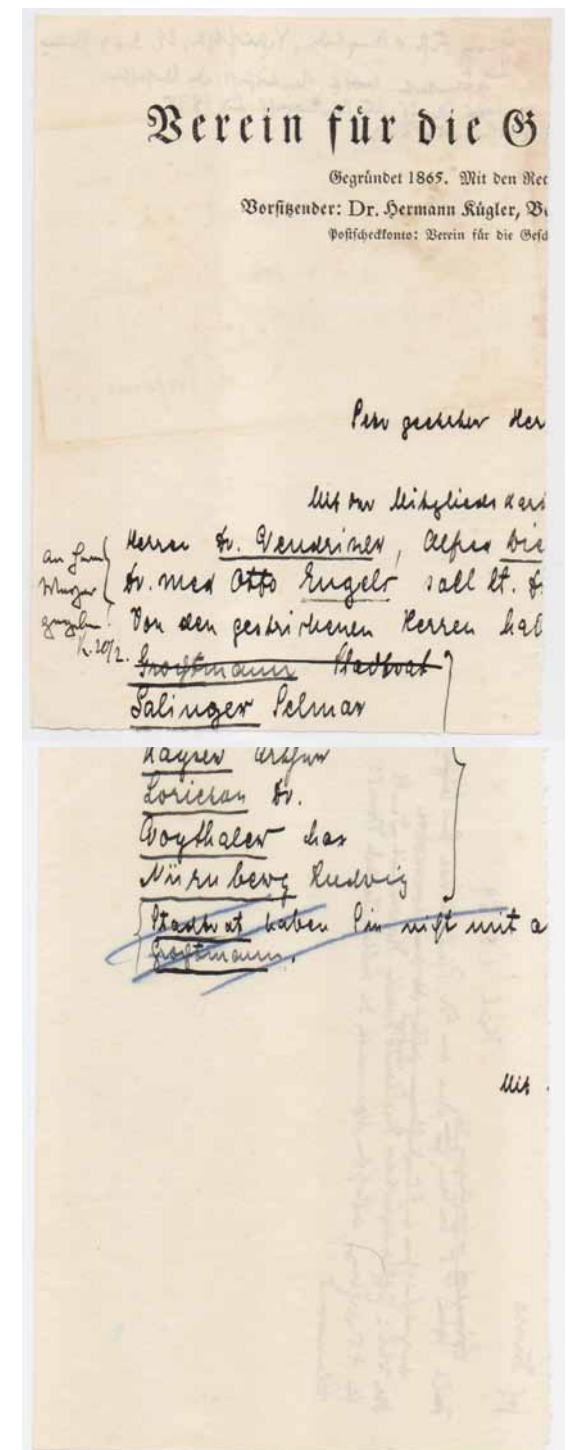 Verein für die G
Gegründet 1865. Mit den Rec
Vorsitzender: Dr. Hermann Kügler, Be
Postscheckkonto: Verein für die Gesch
Sehr geehrter Her
Mit der Mitglieds kart
an Herrn
Herren Dr. Wendriner, Alfred Die
Dr. med Otto Engels soll lt.
K. 20/2.
Von den gestrichenen Herren hab
Großmann Stadtrat
Salinger Selmar
Kayser Arthur
Dr.
Voythaler
Nürnberg Ludwig
Stadtrat haben Sie nicht mit a
Großmann.
Mit